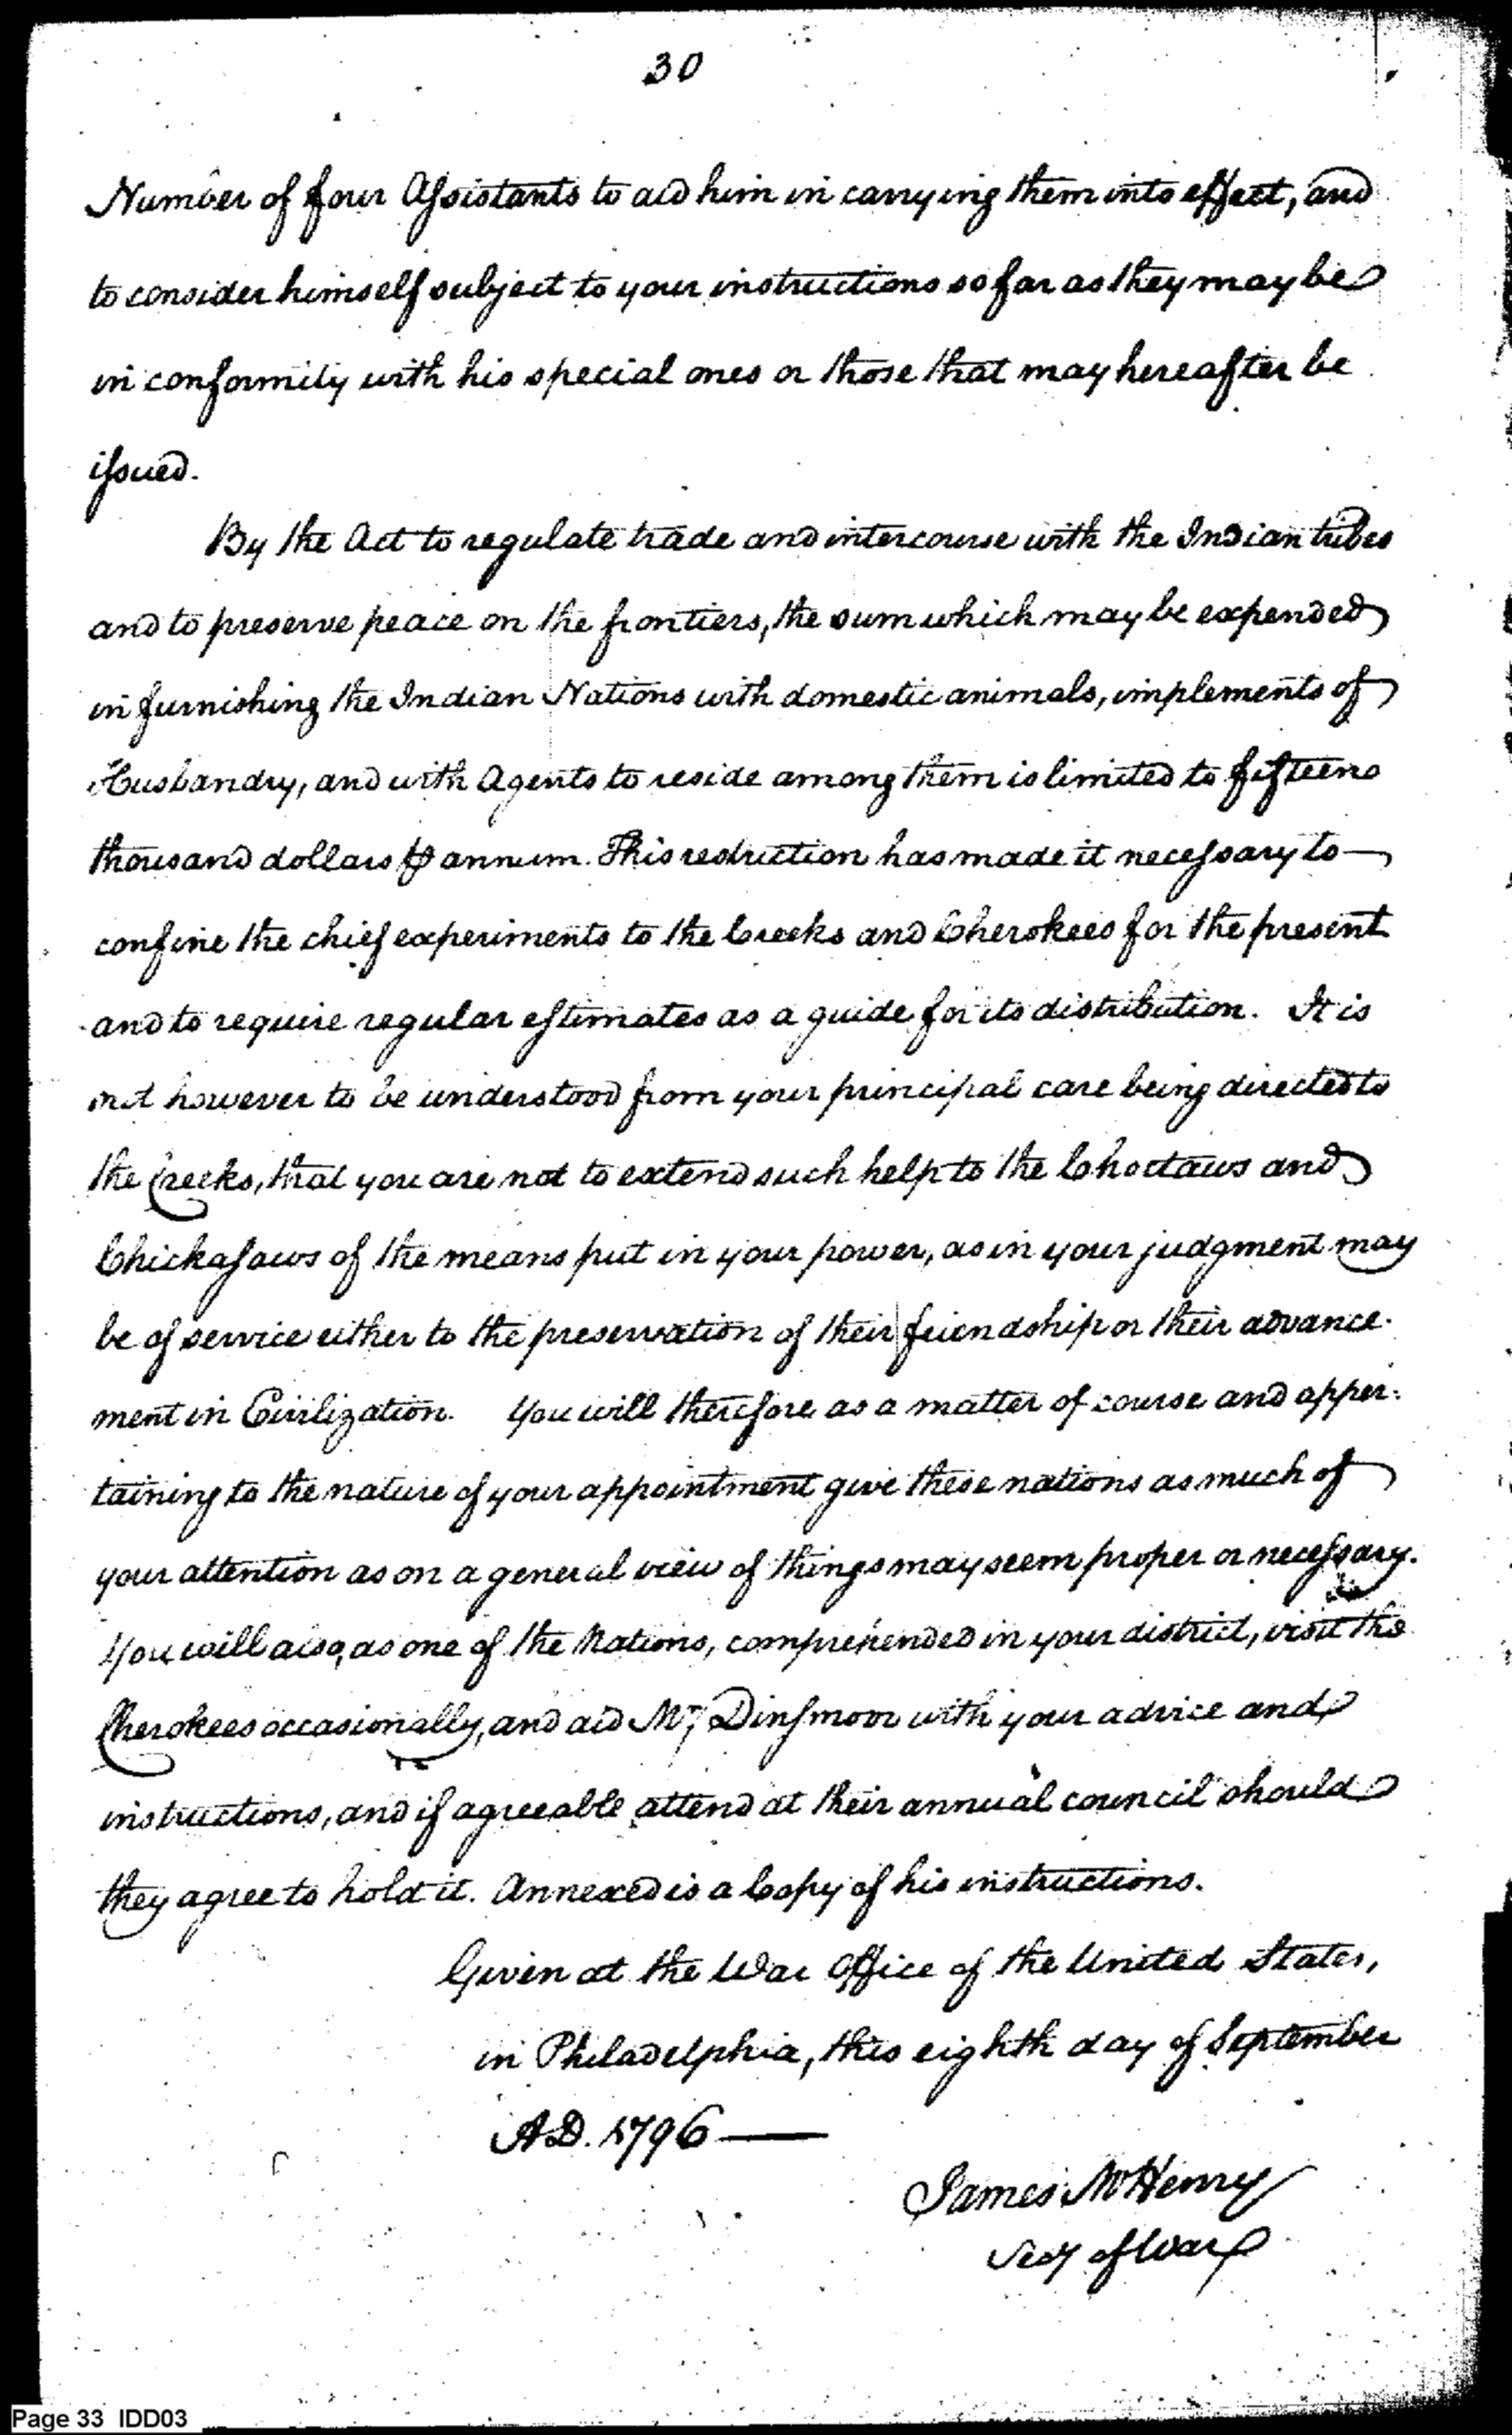 30
Number of four Assistants to aid him in carrying them into effect, and
to consider himself subject to your instructions so far as they may be
in conformity with his special ones or those that may hereafter be
issued.
By the Act to regulate trade and intercourse with the Indian tribes
and to preserve peace on the frontiers, the sum which may be expended
in furnishing the Indian Nations with domestic animals, implements of
Husbandry, and with Agents to reside among them is limited to fifteen
thousand dollars ⅌ annum. This restriction has made it necessary to —
confine the chief experiments to the Creeks and Cherokees for the present
and to require regular estimates as a guide for its distribution. It is
not however to be understood from your principal care being directed to
the Creeks, that you are not to extend such help to the Choctaws and
Chickasaws of the means put in your power, as in your judgment may
be of service either to the preservation of their friendship or their advance-
ment in Civilization. You will therefore as a matter of course and apper-
taining to the nature of your appointment give these nations as much of
your attention as on a general view of things may seem proper or necessary.
You will also, as one of the Nations, comprehended in your district, visit the
Cherokees occasionally, and aid Mr. Dinsmoor with your advice and
instructions, and if agreeable attend at their annual council should
they agree to hold it. Annexed is a Copy of his instructions.
Given at the War Office of the United States,
in Philadelphia, this eighth day of September
A.D. 1796 —
James McHenry
Secy of War
Page 33 IDD03